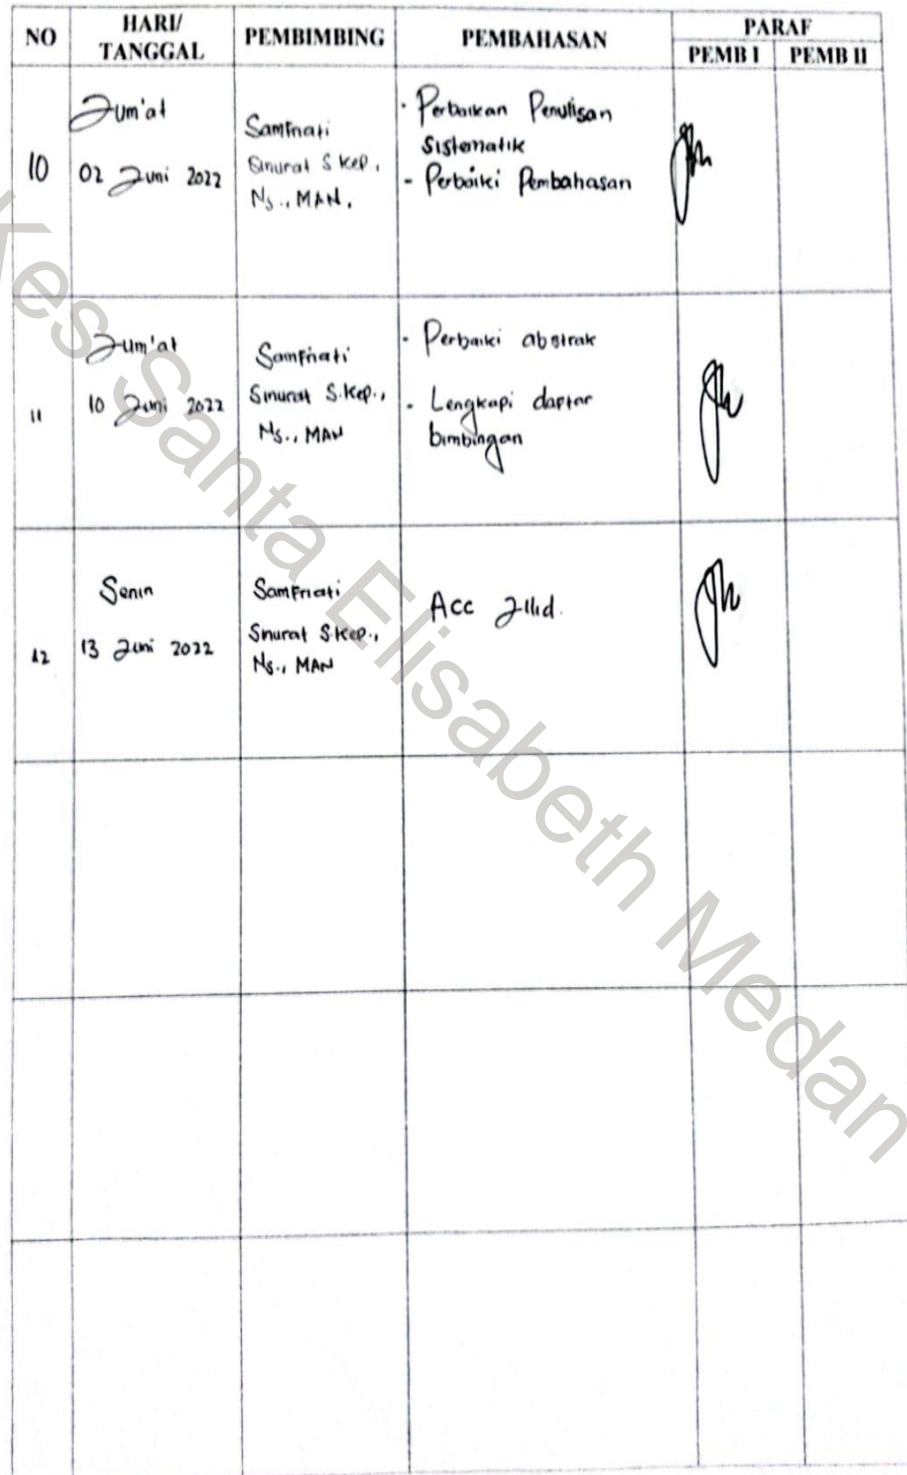 NO HARI/ PEMBIMBING PEMBAHASAN PARAF
TANGGAL PEMB I PEMB II
10
Jum'at
02 Juni 2022
Samfriati
Sinurat S.Kep.,
Ns., MAN.
- Perbaikan Penulisan
Sistematik
- Perbaiki Pembahasan
11
Jum'at
10 Juni 2022
Samfriati
Sinurat S.Kep.,
Ns., MAN
- Perbaiki abstrak
- Lengkapi daftar
bimbingan
12
Senin
13 Juni 2022
Samfriati
Sinurat S.Kep.,
Ns., MAN
Acc Jilid.
Kes Santa Elisabeth Medan